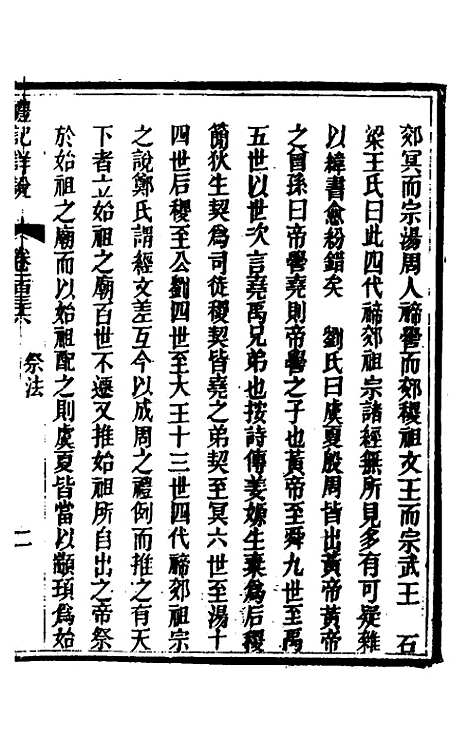 郊冥而宗湯周人禘嚳而郊稷祖文王而宗武王　石
梁王氏曰此四代禘郊祖宗諸經無所見多有可疑雜
以緯書愈紛錯矣　劉氏曰虞夏殷周皆出黃帝黃帝
之曾孫曰帝嚳堯則帝嚳之子也黃帝至舜九世至禹
五世以世次言堯禹兄弟也按詩傳姜嫄生棄爲后稷
簡狄生契爲司徒稷契皆堯之弟契至冥六世至湯十
四世后稷至公劉四世至大王十三世四代禘郊祖宗
之說鄭氏謂經文差互今以成周之禮例而推之有天
下者立始祖之廟百世不遷又推始祖所自出之帝祭
於始祖之廟而以始祖配之則虞夏皆當以顓頊爲始
禮記詳說
祭法
二